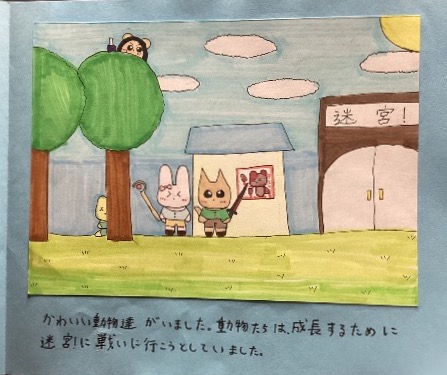 迷宮!
かわいい動物達がいました。動物たちは、成長するために
迷宮!に戦いに行こうとしていました。